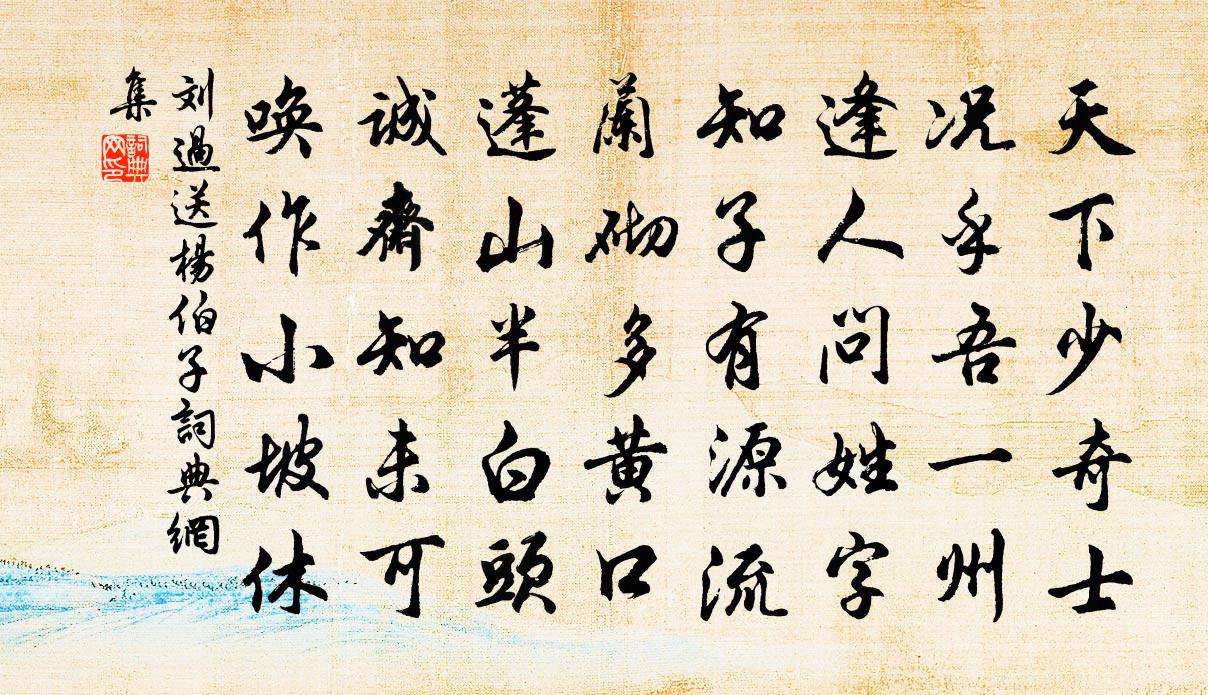 天下少奇士
况乎吾一州
逢人问姓字
知子有源流
蘭砌多黄口
蓬山半白頭
誠齋知未可
唤作小坡休
刘過送楊伯子詞典網
集
詞典
网印